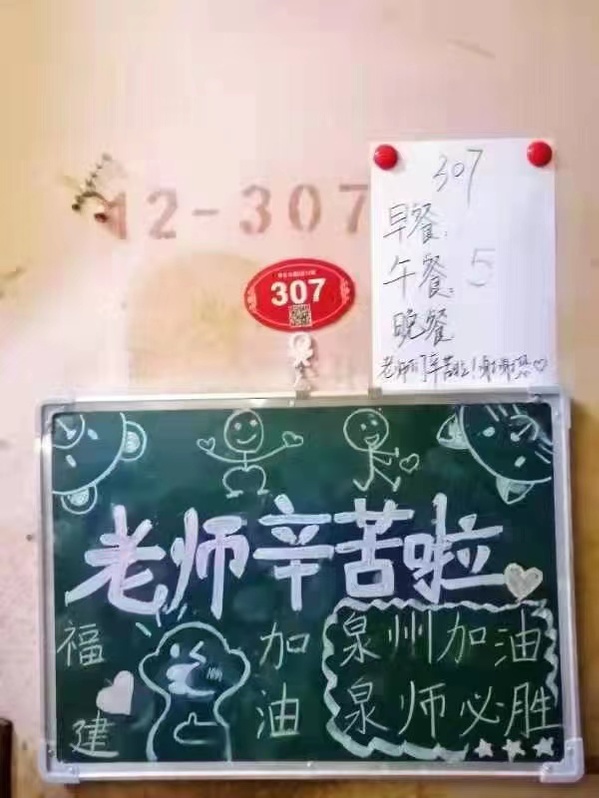 12-307
307
307
早餐:
午餐: 5
晚餐
老师们辛苦啦!谢谢您♡
老师辛苦啦
福建
加油
泉州加油
泉师必胜